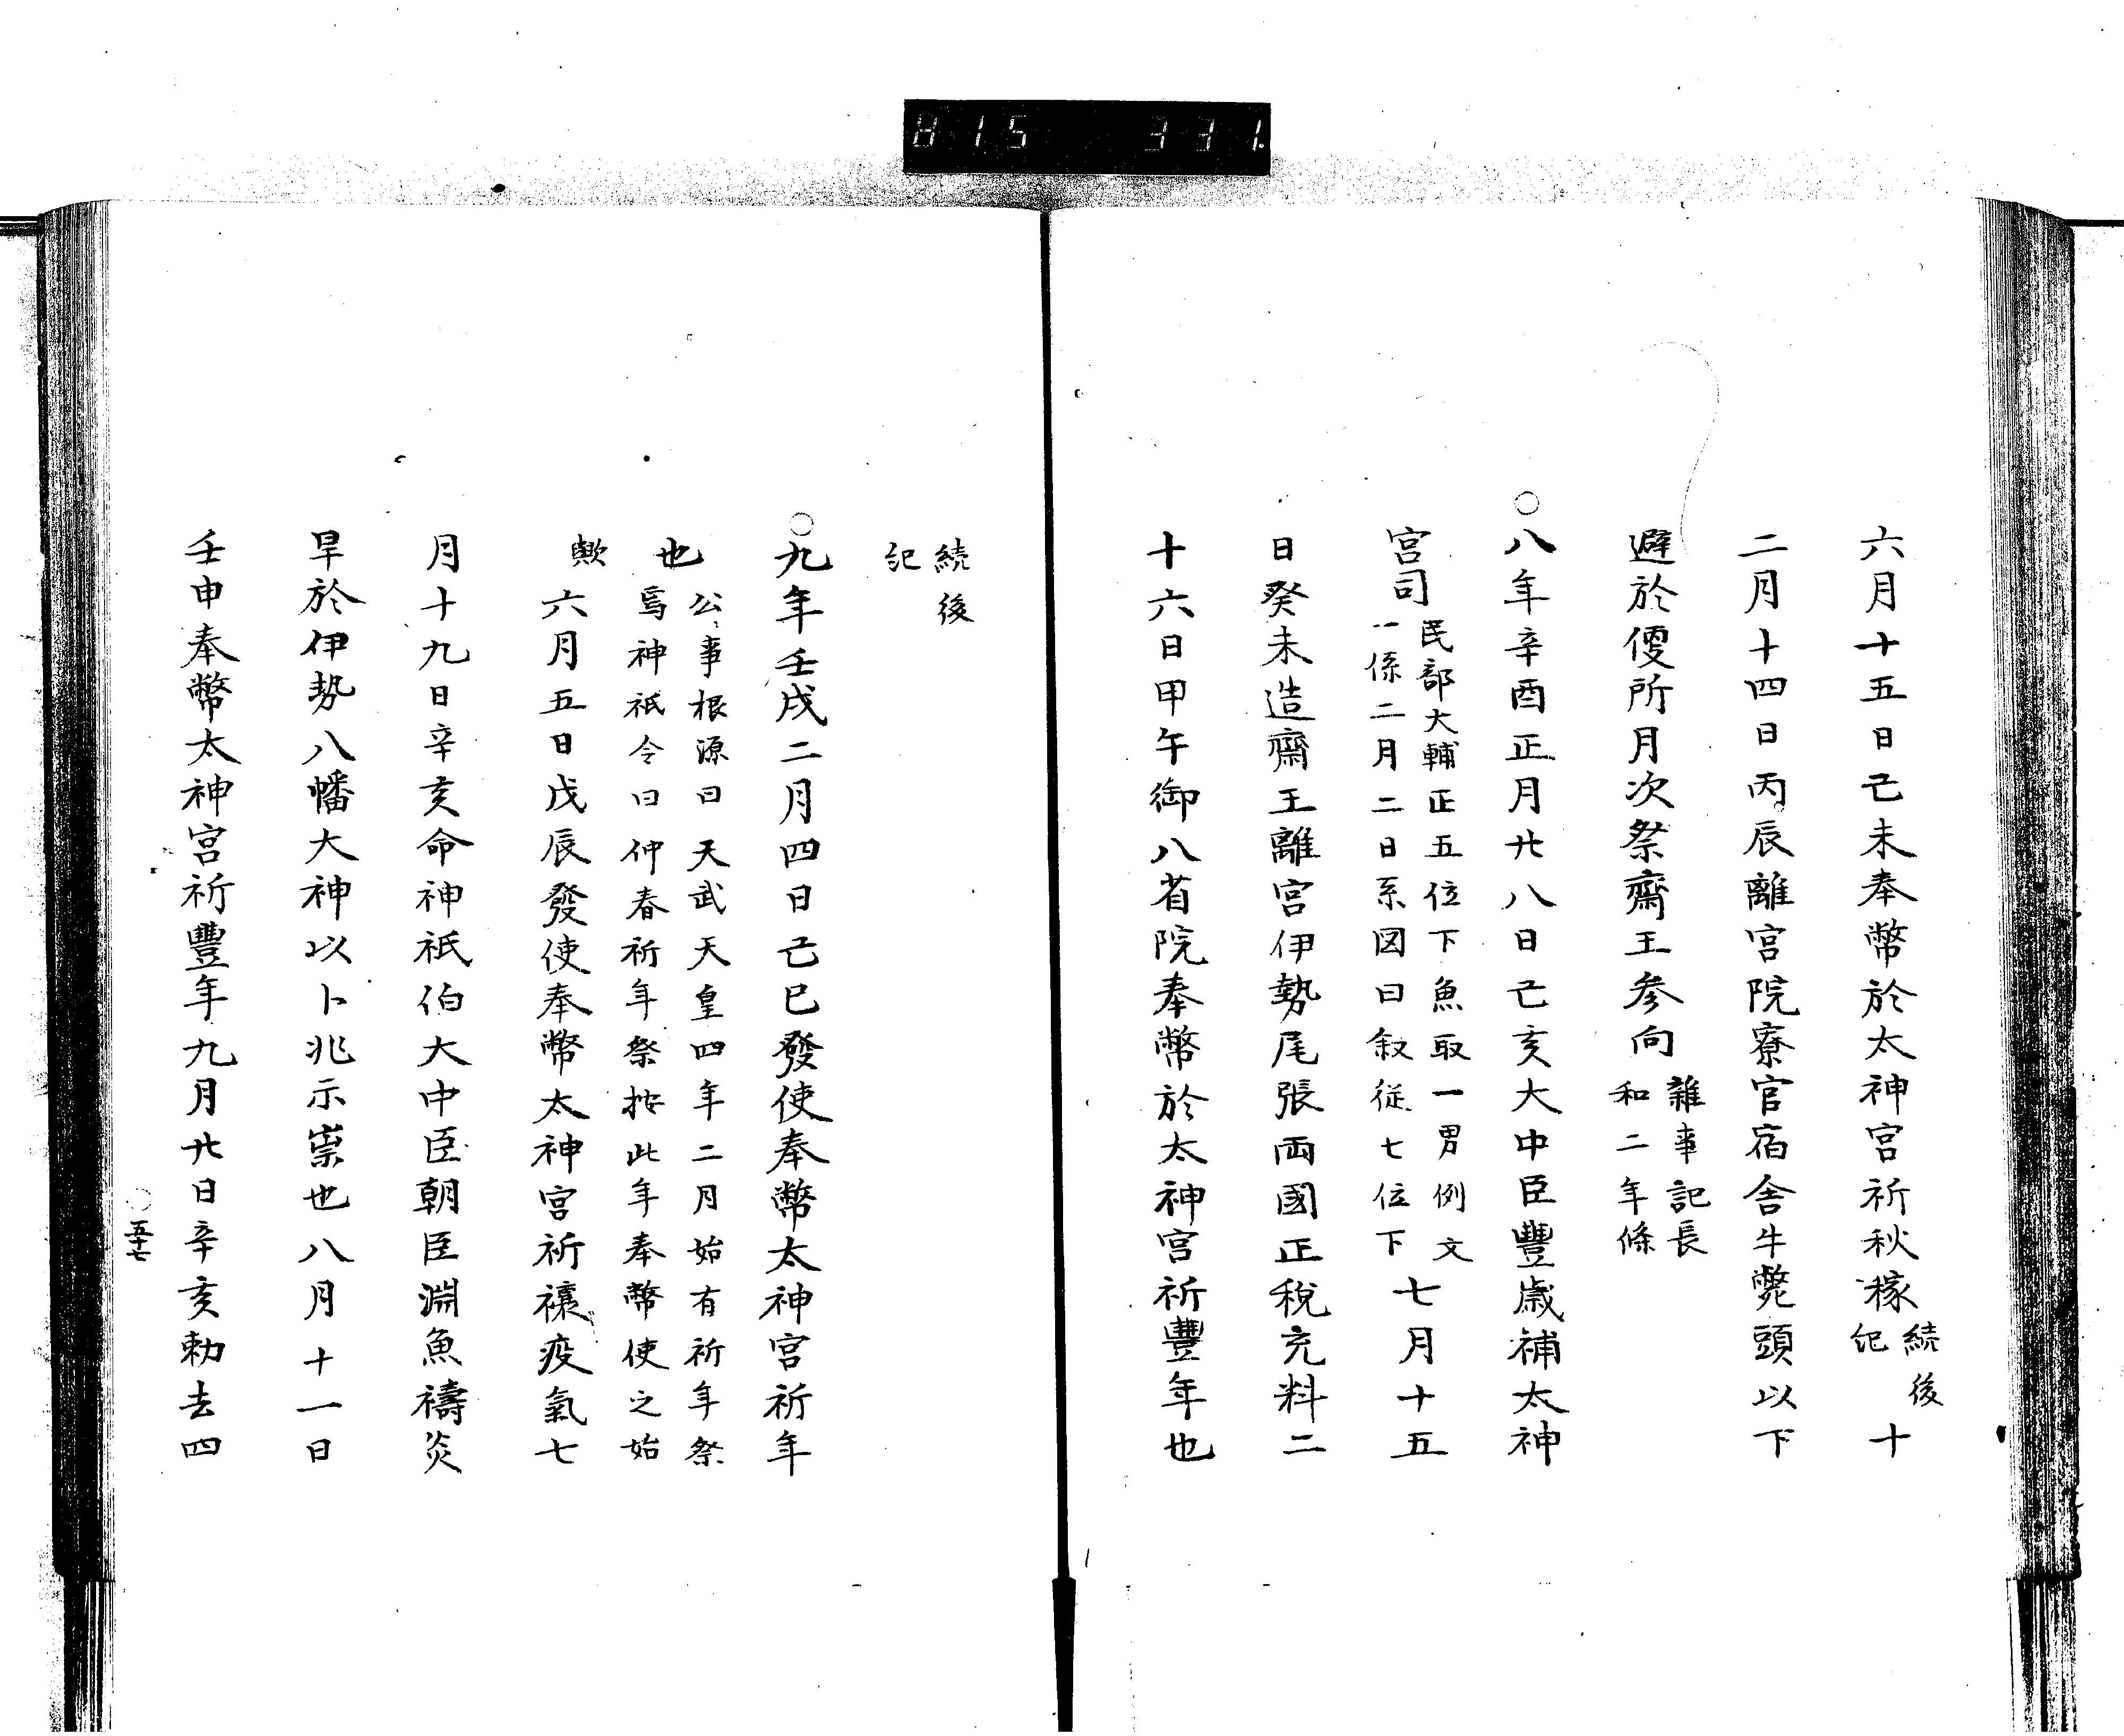 815 331.
六月十五日己未奉幣於太神宮祈秋稼
続後
紀
十
二月十四日丙辰離宮院寮官宿舎牛斃頭以下
避於便所月次祭齋王参向
雑事記長
和二年條
○八年辛酉正月廿八日己亥大中臣豐歳補太神
宮司
民部大輔正五位下魚取一男例文
一係二月二日系図曰叙従七位下
七月十五
日癸未造齋王離宮伊勢尾張両國正税充料二
十六日甲午御八省院奉幣於太神宮祈豐年也
続後
紀
○九年壬戌二月四日己巳發使奉幣太神宮祈年
也
公事根源曰天武天皇四年二月始有祈年祭
焉神祇令曰仲春祈年祭按此年奉幣使之始
歟
六月五日戊辰發使奉幣太神宮祈禳疫氣七
月十九日辛亥命神祇伯大中臣朝臣淵魚禱炎
旱於伊勢八幡大神以卜兆示祟也八月十一日
壬申奉幣太神宮祈豐年九月廿日辛亥勅去四
○五十七